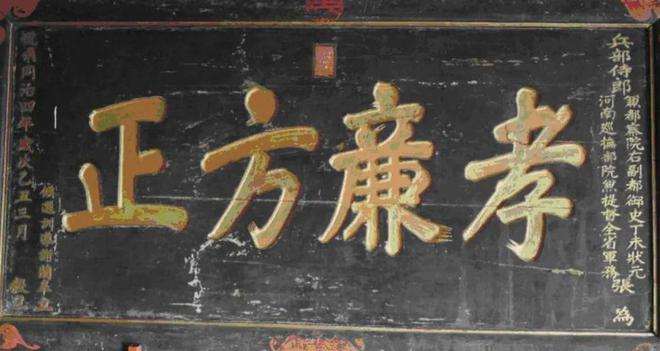 兵部侍郎
兼都察院右副都御史丁未狀元
河南巡撫部院兼提督全省軍務
張 為
孝廉方正
候選訓導謝蘭
同治四年歲次乙丑三月 穀旦